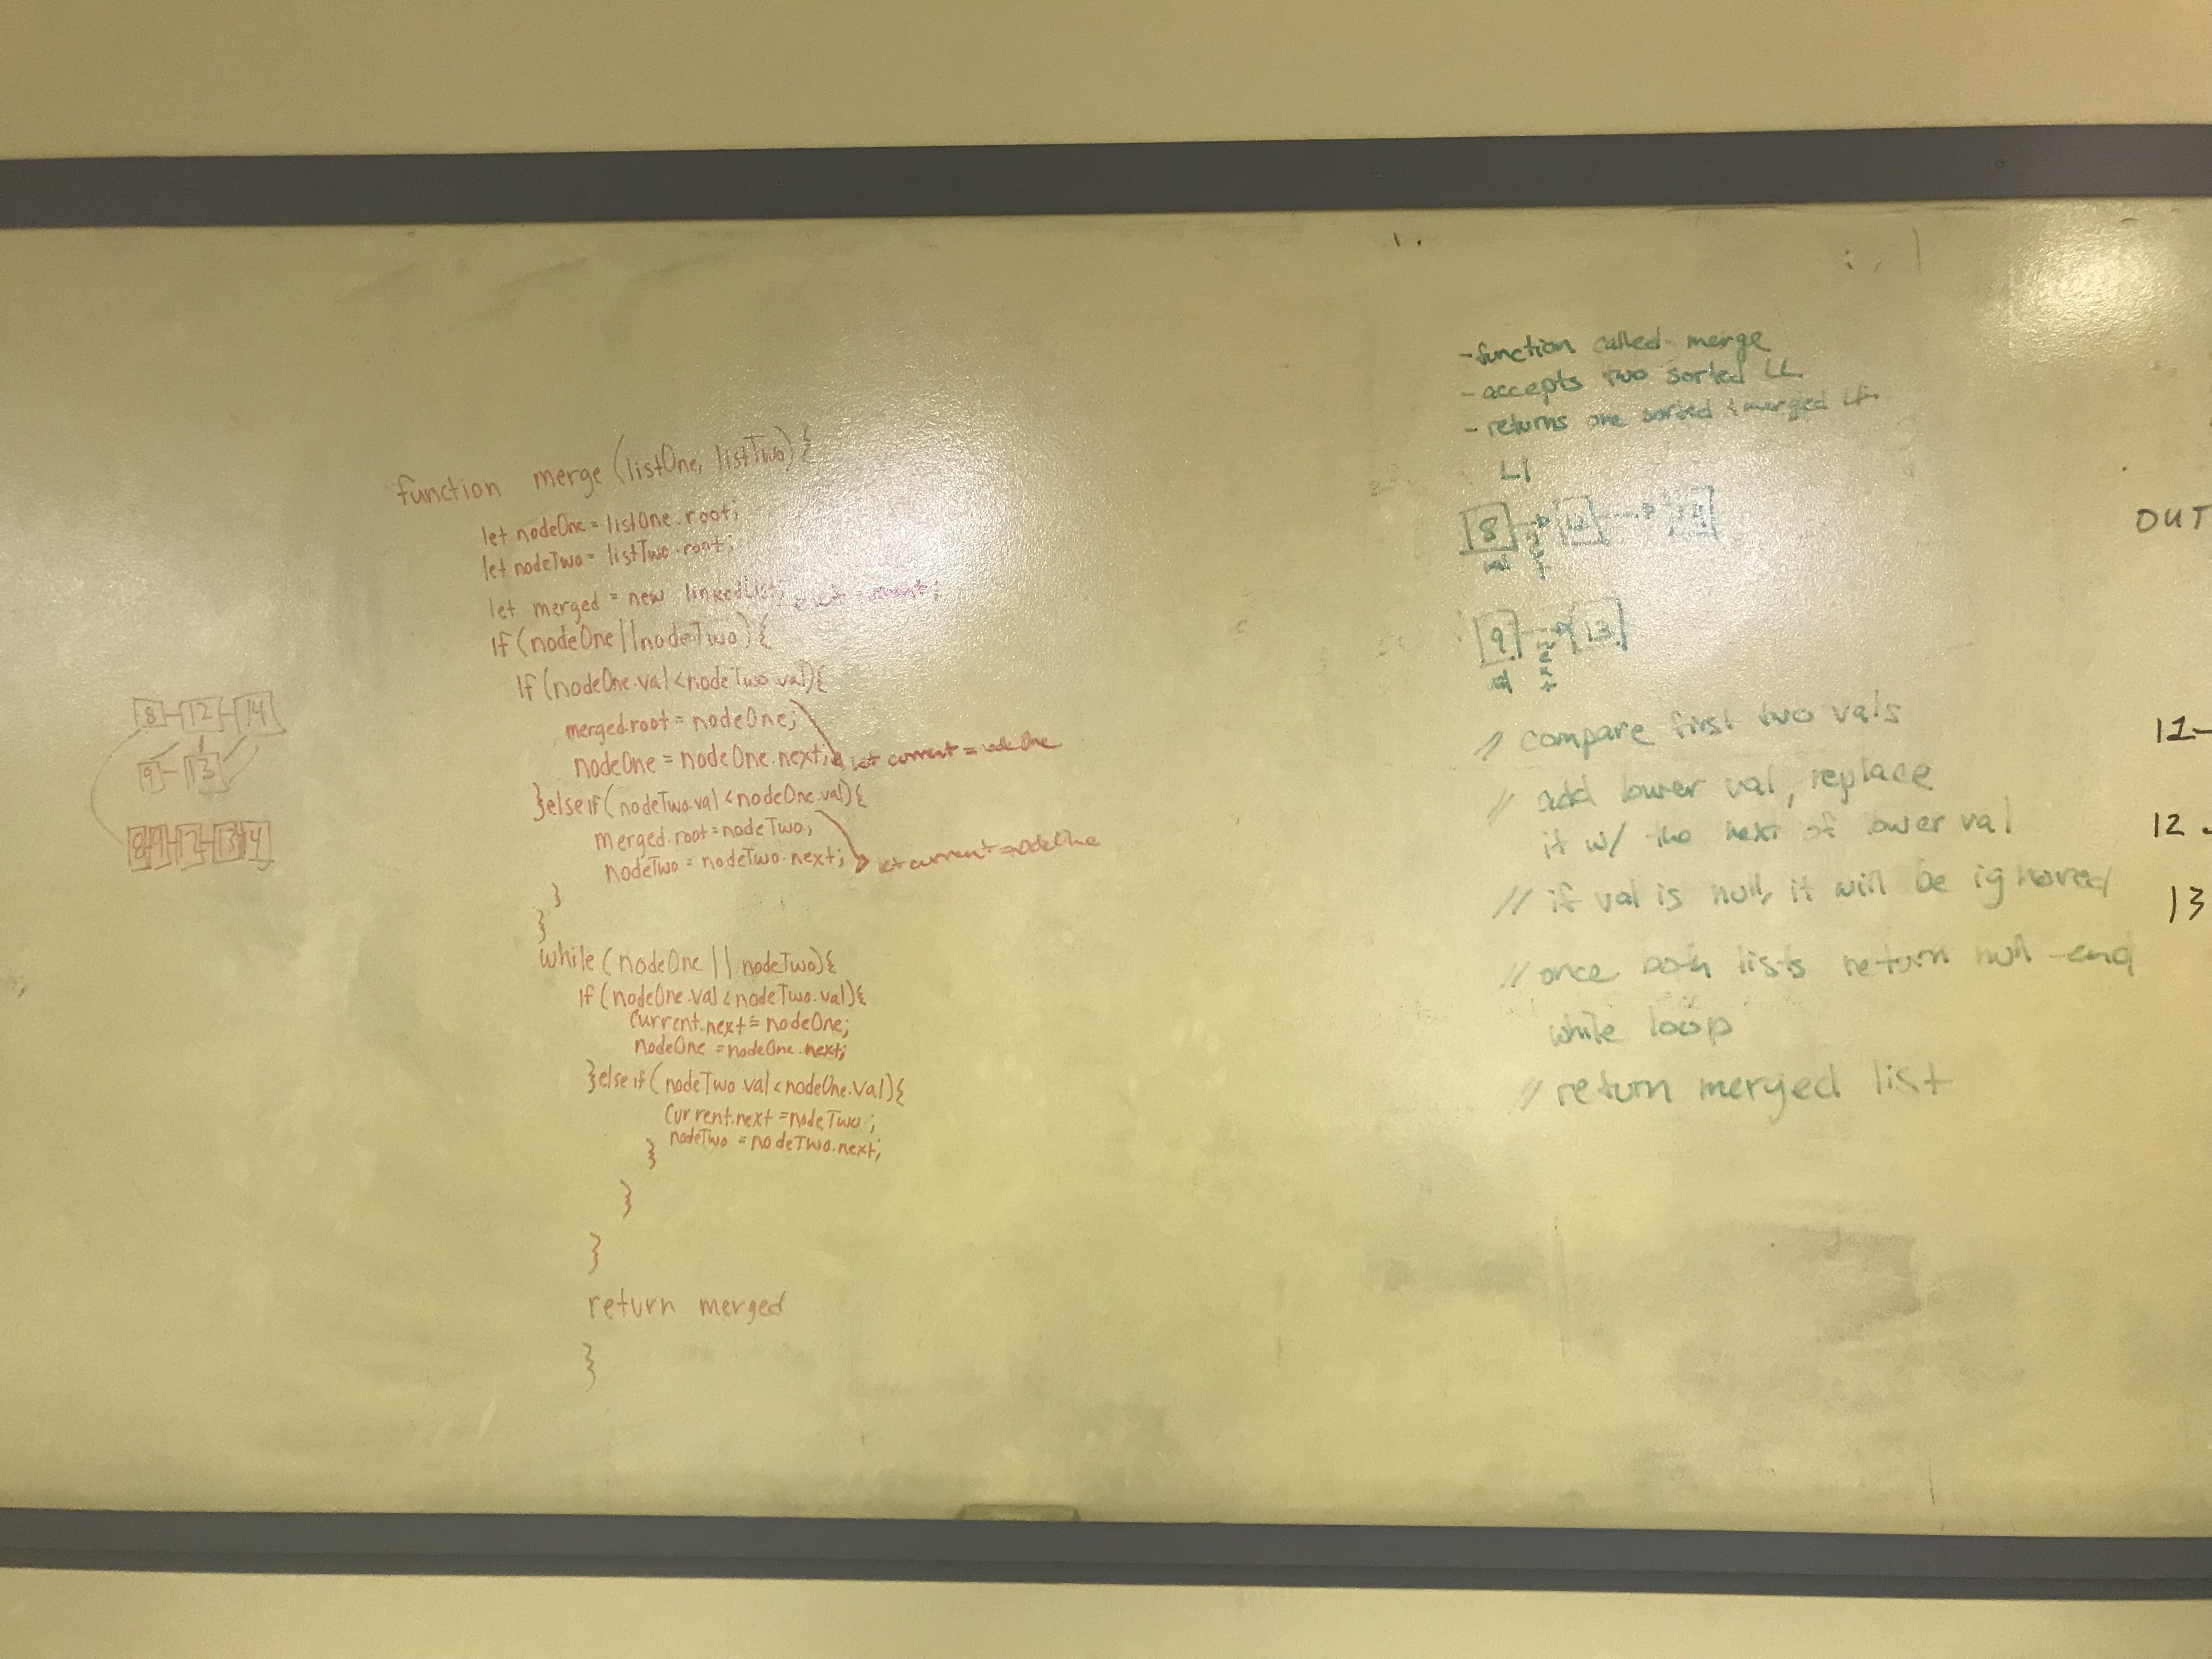 8 12 14
9 13
8 9 12 13 14
function merge (listOne, listTwo) {
let nodeOne = listOne.root;
let nodeTwo = listTwo.root;
let merged = new linkedList;
If (nodeOne || nodeTwo) {
If (nodeOne.val < nodeTwo.val) {
merged.root = nodeOne;
nodeOne = nodeOne.next; let current = nodeOne
} else if (nodeTwo.val < nodeOne.val) {
merged.root = nodeTwo;
nodeTwo = nodeTwo.next; let current = nodeOne
}
}
while (nodeOne || nodeTwo) {
If (nodeOne.val < nodeTwo.val) {
Current.next = nodeOne;
nodeOne = nodeOne.next;
} else if (nodeTwo.val < nodeOne.val) {
Current.next = nodeTwo;
nodeTwo = nodeTwo.next;
}
}
}
return merged
}
- function called merge
- accepts two sorted LL
- returns one sorted & merged LL
L1
8 12 14
val next
9 13
val next
// compare first two vals
// add lower val, replace
it w/ the next of lower val
// if val is null, it will be ignored
// once both lists return null - end
while loop
// return merged list
OUT
11-
12
13